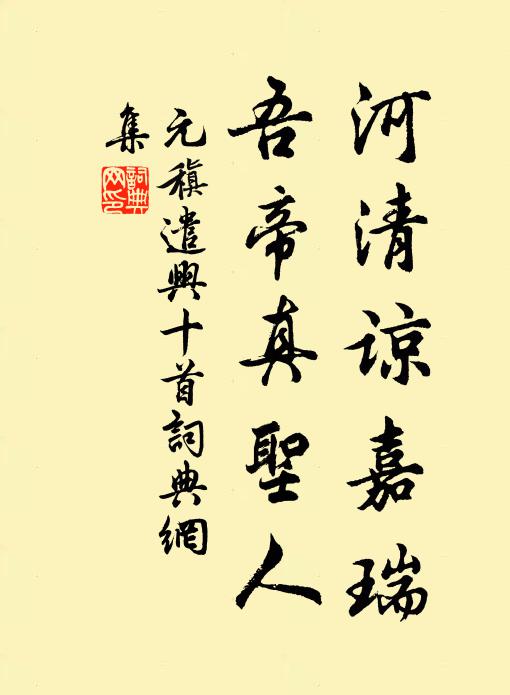 河清諒嘉瑞
吾帝真聖人
元稹遣興十首詞典網
集
詞典網印